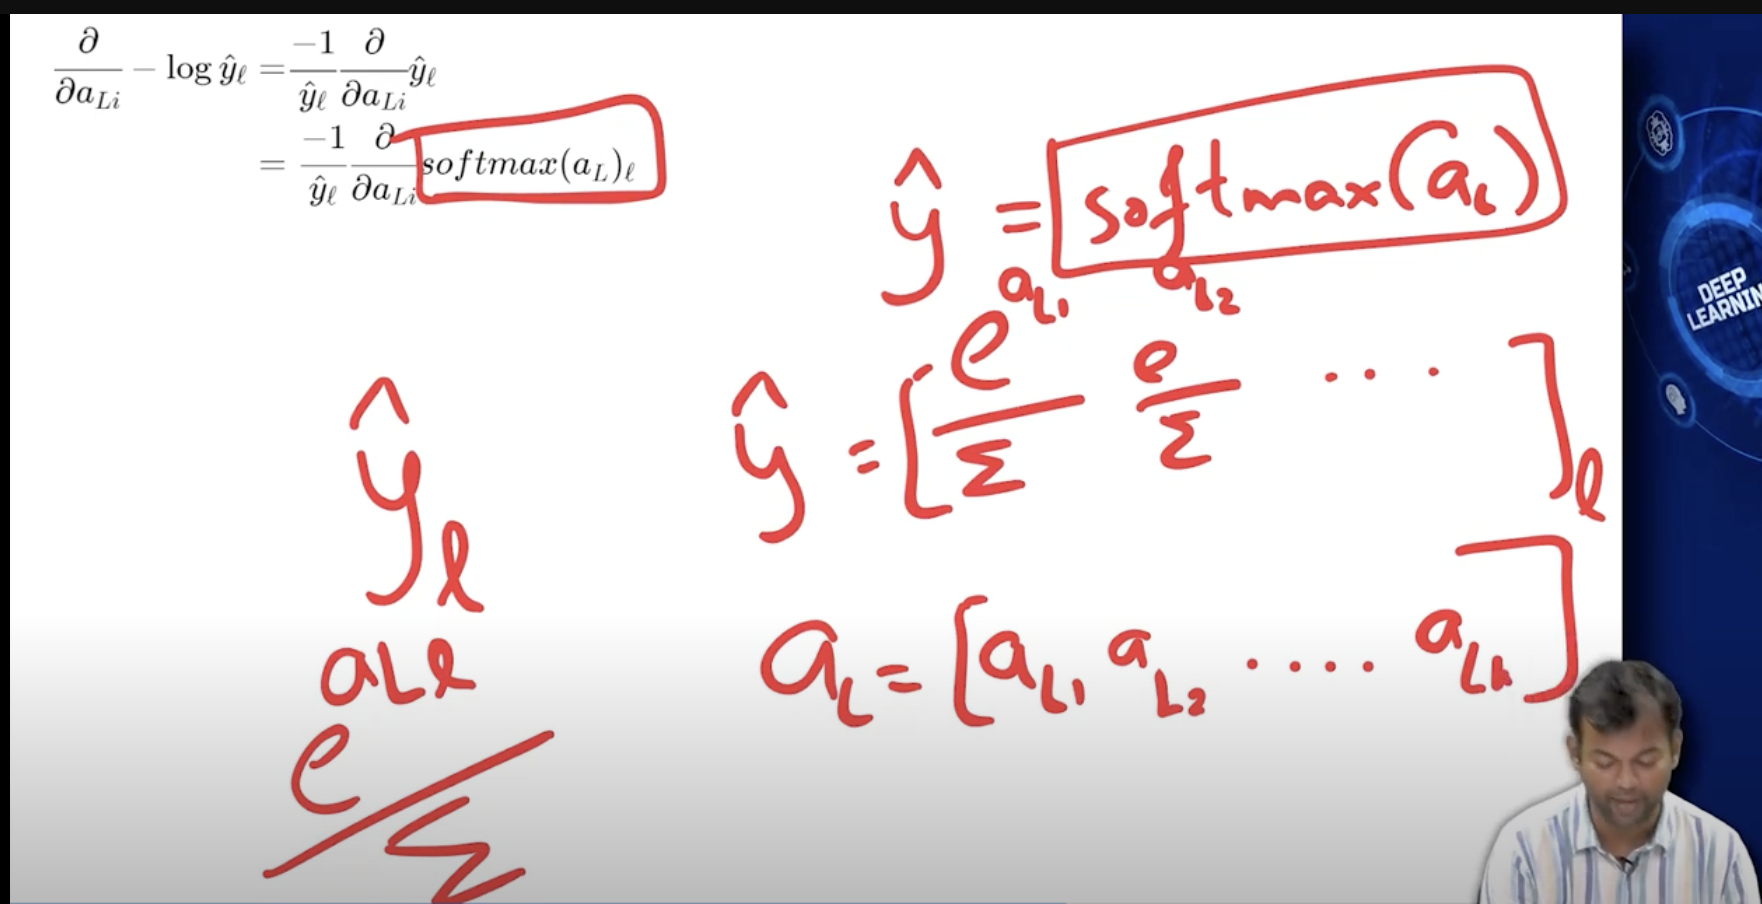 ∂/∂a_{Li} − log ŷ_ℓ = −1/ŷ_ℓ ∂/∂a_{Li} ŷ_ℓ
= −1/ŷ_ℓ ∂/∂a_{Li} softmax(a_L)_ℓ
ŷ = softmax(a_L)
ŷ = [e^{a_{L1}}/Σ e^{a_{L2}}/Σ ...]_ℓ
a_L = [a_{L1} a_{L2} .... a_{Lk}]
ŷ_ℓ
e^{a_{Lℓ}}/Σ
DEEP
LEARNIN